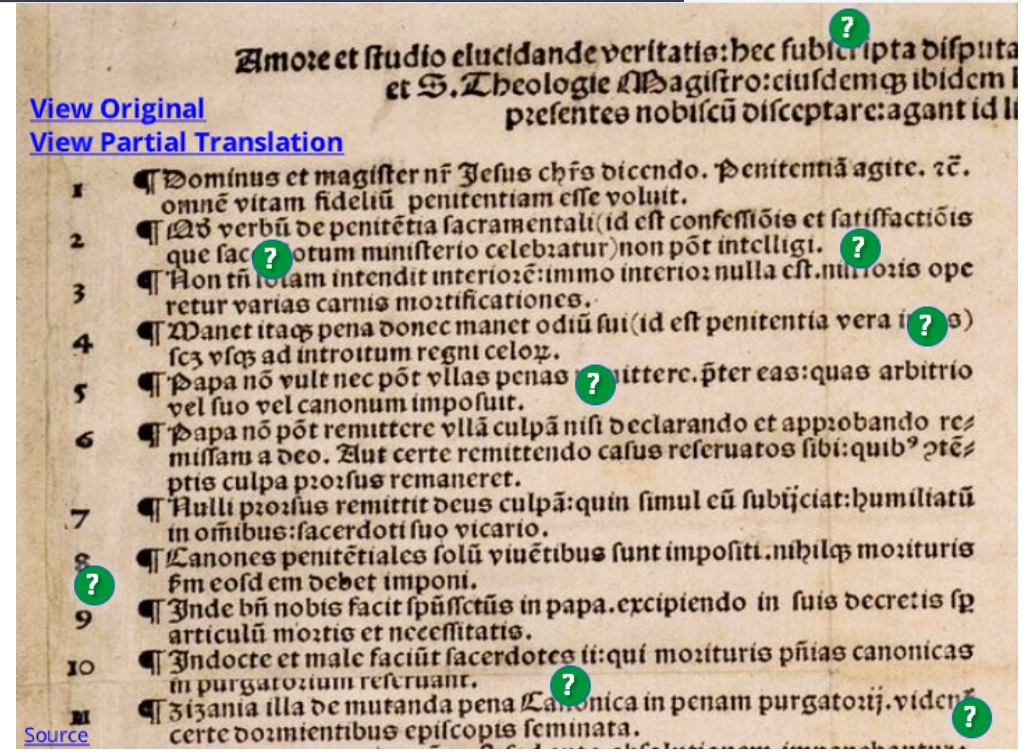 Amore et studio elucidande veritatis: hec subscripta disputa
et S. Theologie Magistro: eiusdemqꝫ ibidem
presentes nobiscū disceptare: agant id li
View Original
View Partial Translation
1 ¶ Dominus et magister nr̄ Jesus chr̄s dicendo. Penitentiā agite. ⁊c̄.
omnē vitam fideliū penitentiam esse voluit.
2 ¶ Qd̄ verbū de penitētia sacramentali (id est confessiōis et satisfactiōis
que otum ministerio celebratur) non pōt intelligi.
3 ¶ Non tn̄ intendit interiorē: immo interior nulla est. ope
retur varias carnis mortificationes.
4 ¶ Manet itaqꝫ pena donec manet odiū sui (id est penitentia vera
scꝫ vsqꝫ ad introitum regni celoꝝ.
5 ¶ Papa nō vult nec pōt vllas penas p̄ter eas: quas arbitrio
vel suo vel canonum imposuit.
6 ¶ Papa nō pōt remittere vllā culpā nisi declarando et approbando re⸗
missam a deo. Aut certe remittendo casus reseruatos sibi: quibꝰ ꝯtē⸗
ptis culpa prorsus remaneret.
7 ¶ Nulli prorsus remittit deus culpā: quin simul eū subijciat: humiliatū
in om̄ibus: sacerdoti suo vicario.
8 ¶ Canones penitētiales solū viuētibus sunt impositi. nihilqꝫ morituris
fm eosd em debet imponi.
9 ¶ Inde bn̄ nobis facit spūssctūs in papa. excipiendo in suis decretis sp̄
articulū mortis et necessitatis.
10 ¶ Indocte et male faciūt sacerdotes ii: qui morituris pn̄ias canonicas
in purgatorium reseruant.
11 ¶ Zizania illa de mutanda pena Canonica in penam purgatorij.
certe dormientibus episcopis seminata.
Source